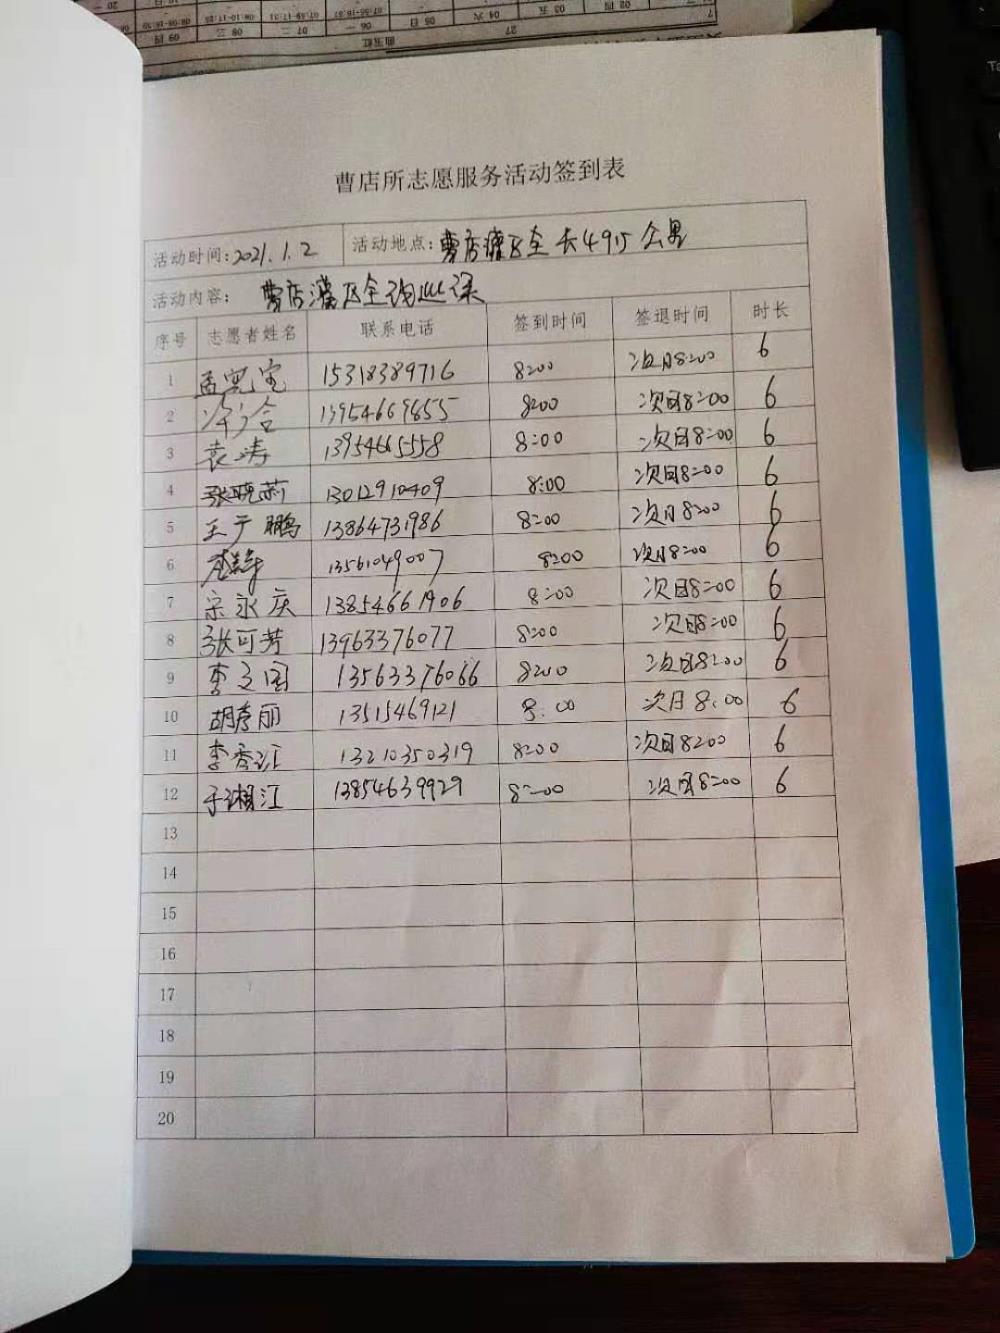 曹店所志愿服务活动签到表
活动时间:2021.1.2 活动地点:曹店灌区全长49.15公里
活动内容: 曹店灌区全线巡渠
序号 志愿者姓名 联系电话 签到时间 签退时间 时长
1 孟宪宝 15318389716 8:00 次日8:00 6
2 13954669855 8:00 次日8:00 6
3 袁涛 13954665558 8:00 次日8:00 6
4 张晓莉 13012910409 8:00 次日8:00 6
5 王于鹏 13864731986 8:00 次日8:00 6
6 13561049007 8:00 次日8:00 6
7 宗永庆 13854661906 8:00 次日8:00 6
8 张可芳 13963376077 8:00 次日8:00 6
9 李文国 13563376066 8:00 次日8:00 6
10 胡秀丽 13515469121 8:00 次日8:00 6
11 李秀江 13210350319 8:00 次日8:00 6
12 于湘江 13854639929 8:00 次日8:00 6
13
14
15
16
17
18
19
20